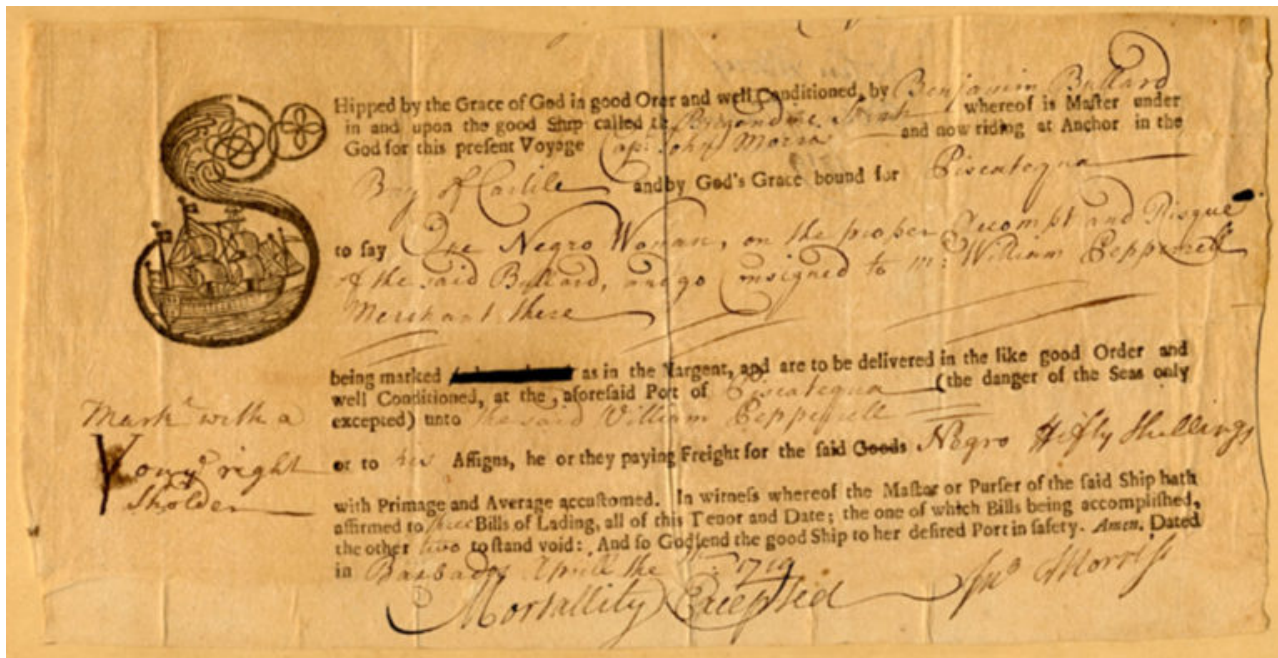 SHipped by the Grace of God in good Orer and well Conditioned, by Benjamin Bullard
in and upon the good Ship called the Brigandine Sarah whereof is Maſter under
God for this preſent Voyage Capt John Morris and now riding at Anchor in the
Bay of Carlile and by God's Grace bound for Piscatequa
to ſay One Negro Woman, on the proper Accompt and Risque
of the said Bullard, and go Consigned to mr William Pepperrell
Merchant there
being marked as in the Margent, and are to be delivered in the like good Order and
well Conditioned, at the aforeſaid Port of Piscatequa (the danger of the Seas only
excepted) unto the said William Pepperrell
Markd with a
Y on ye right
Sholder
or to his Aſſigns, he or they paying Freight for the ſaid Goods Negro Fifty Shillings
with Primage and Average accuſtomed. In witneſs whereof the Maſter or Purſer of the ſaid Ship hath
affirmed to three Bills of Lading, all of this Tenor and Date; the one of which Bills being accompliſhed,
the other two to ſtand void: And ſo God ſend the good Ship to her deſired Port in ſafety. Amen. Dated
in Barbados Aprill the 1719
Mortallity Excepted Jno Morris